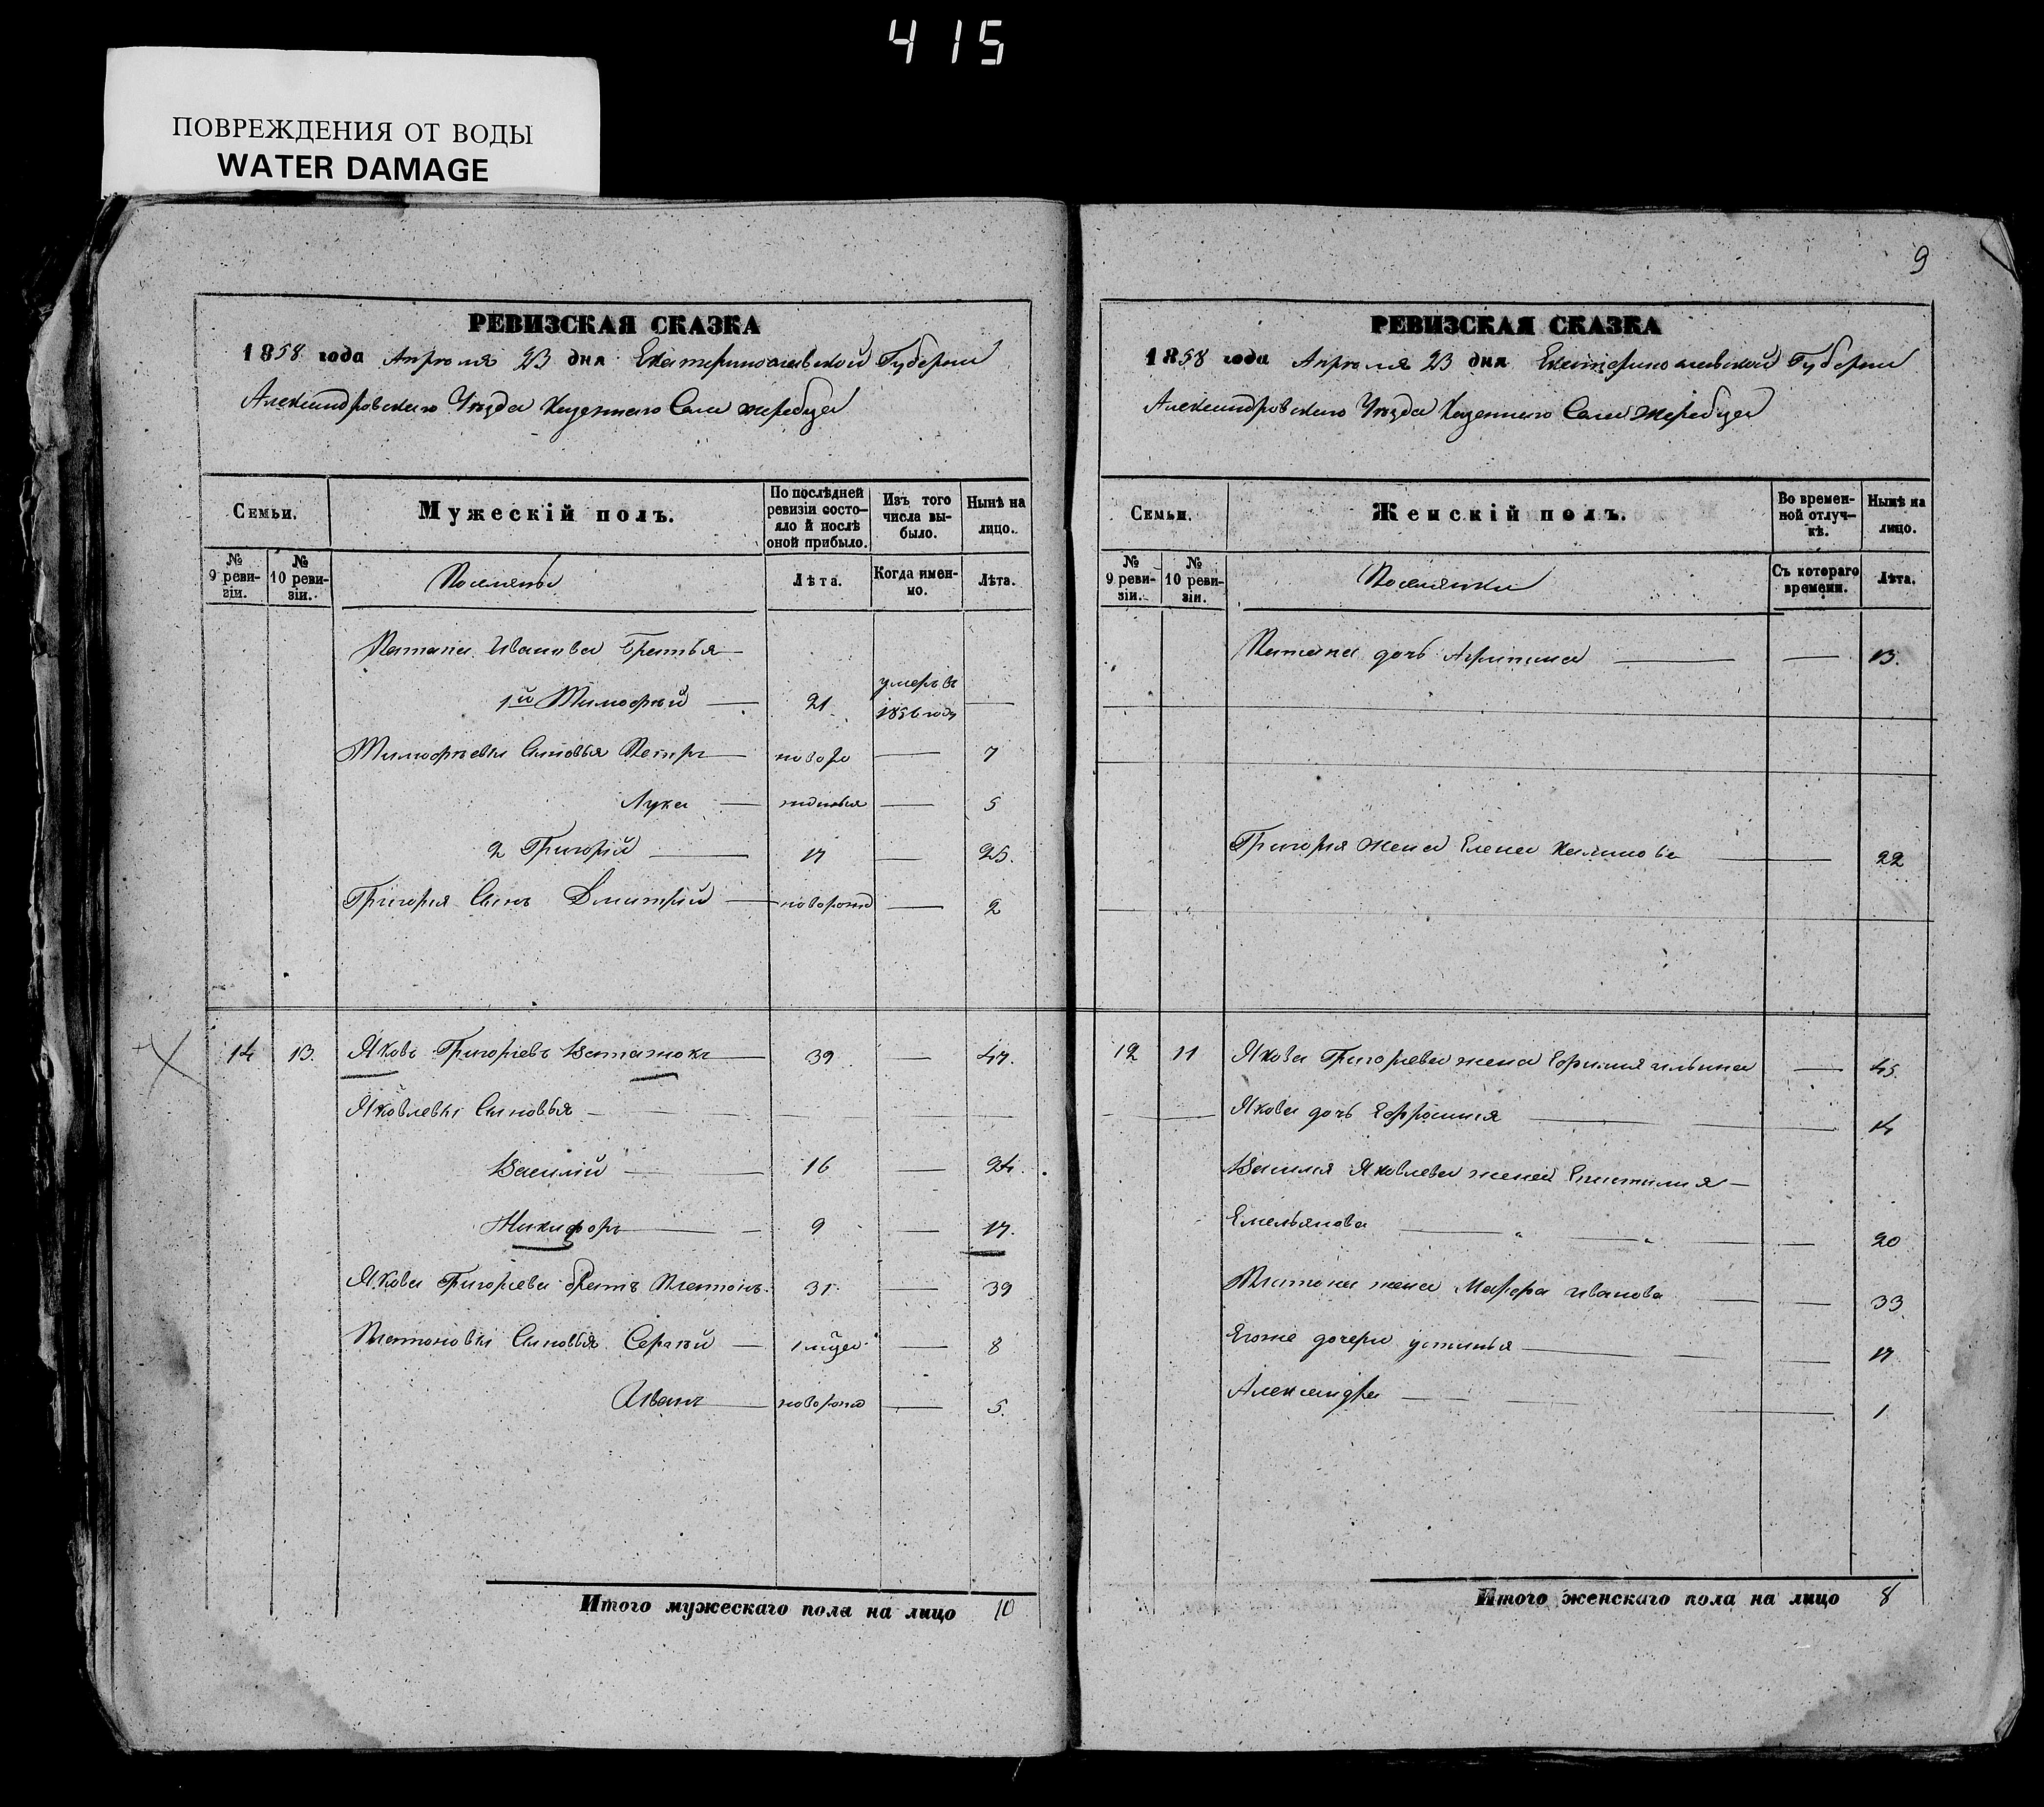 415
ПОВРЕЖДЕНИЯ ОТ ВОДЫ
WATER DAMAGE
РЕВИЗСКАЯ СКАЗКА
1858 года Апреля 23 дня Екатеринославской Губернии
Александровского Уезда Казенного Села Жеребца
Семьи.
Мужескій полъ.
По послѣдней ревизіи состояло и послѣ оной прибыло.
Изъ того числа выбыло.
Нынѣ на лицо.
№ 9 ревизіи.
№ 10 ревизіи.
Поселяне
Лѣта.
Когда именно.
Лѣта.
Иванова Братья
1й Тимофей 21 умеръ въ 1856 году
Тимофеевы Сыновья Петръ новоро 7
Лука жденныя 5
2 Григорій 17 25.
Григорія Сынъ Дмитрій новорожд 2
14 13. Яковъ Григорьевъ 39 47.
Яковлевы Сыновья
Василій 16 24.
Никифоръ 9 17.
Якова Григорьева братъ Платонъ 31 39
Платоновы Сыновья Сергей 8
Иванъ новорожд 5.
Итого мужескаго пола на лицо 10
9
РЕВИЗСКАЯ СКАЗКА
1858 года Апреля 23 дня Екатеринославской Губернии
Александровского Уезда Казенного Села Жеребца
Семьи.
Женскій полъ.
Во временной отлучкѣ.
Нынѣ на лицо.
№ 9 ревизіи.
№ 10 ревизіи.
Поселянки
Съ котораго времени.
Лѣта.
дочь 13.
Григорія жена Елена 22
12 11 Якова Григорьева жена Ефимія Ильина 45.
Якова дочь Ефросинія 14
Василія Яковлева жена
Емельянова 20
Платона жена Иванова 33
Его же дочери Устинья 17
Александра 1
Итого женскаго пола на лицо 8